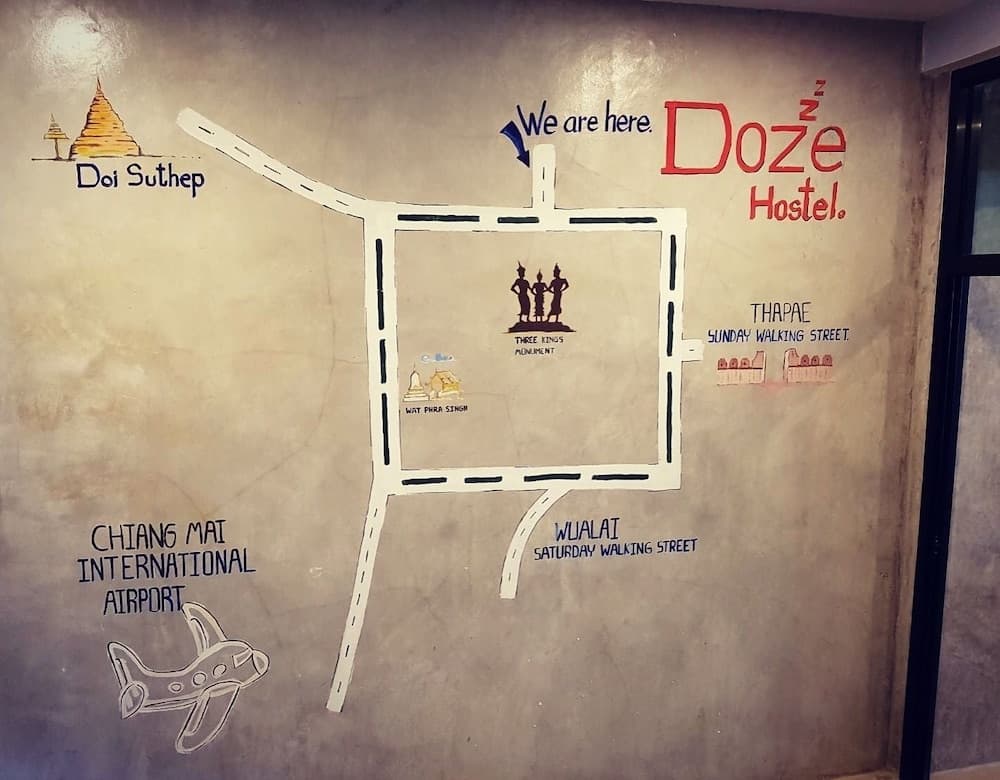 We are here.
zzz
Doze
Hostel.
Doi Suthep
THREE KINGS
MONUMENT
THAPAE
SUNDAY WALKING STREET.
WAT PHRA SINGH
WUALAI
SATURDAY WALKING STREET
CHIANG MAI
INTERNATIONAL
AIRPORT